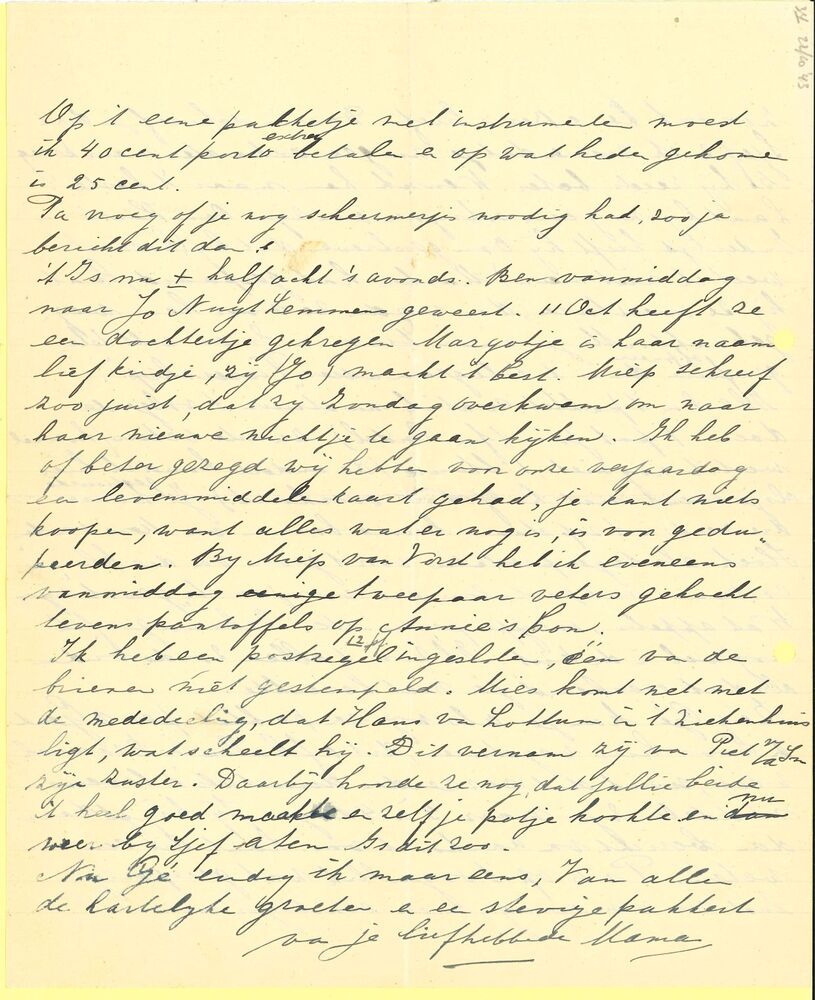 22/10 '43
Op 't eene pakketje met instrumenten moest
ik 40 cent porto extra betalen en op wat heden gekomen
is 25 cent.
Pa vroeg of je nog scheermesjes noodig had, zoo ja
bericht dit dan.
't Is nu ± half acht 's avonds. Ben vanmiddag
naar Jo Nuyt Lemmens geweest. 11 Oct heeft ze
een dochtertje gekregen Margotje is haar naam
lief kindje, zij (Jo) maakt 't best. Miep schreef
zoo juist, dat zy Zondag overkwam om naar
haar nieuwe nichtje te gaan kijken. Ik heb
of beter gezegd wij hebben voor onze verjaardag
een levensmiddelen kaart gehad, je kunt niets
koopen, want alles wat er nog is, is voor gedu„
peerden. By Miep van Vorst heb ik eveneens
vanmiddag eenige twee paar veters gekocht
tevens pantoffels op Annie's bon.
Ik heb een postzegel 12 pf ingesloten, één van de
brieven niet gestempeld. Mies komt net met
de mededeeling, dat Hans van Lottum in 't ziekenhuis
ligt, wat scheelt hij. Dit vernam zij van Piet
zijn zuster. Daarbij hoorde ze nog, dat jullie beide
't heel goed maakte en zelf je potje kookte en dan nu
weer by Sjef aten. Is dit zoo.
Nu Gé eindig ik maar eens, Van allen
de hartelyke groeten en een stevige pakkert
van je liefhebbende Mama